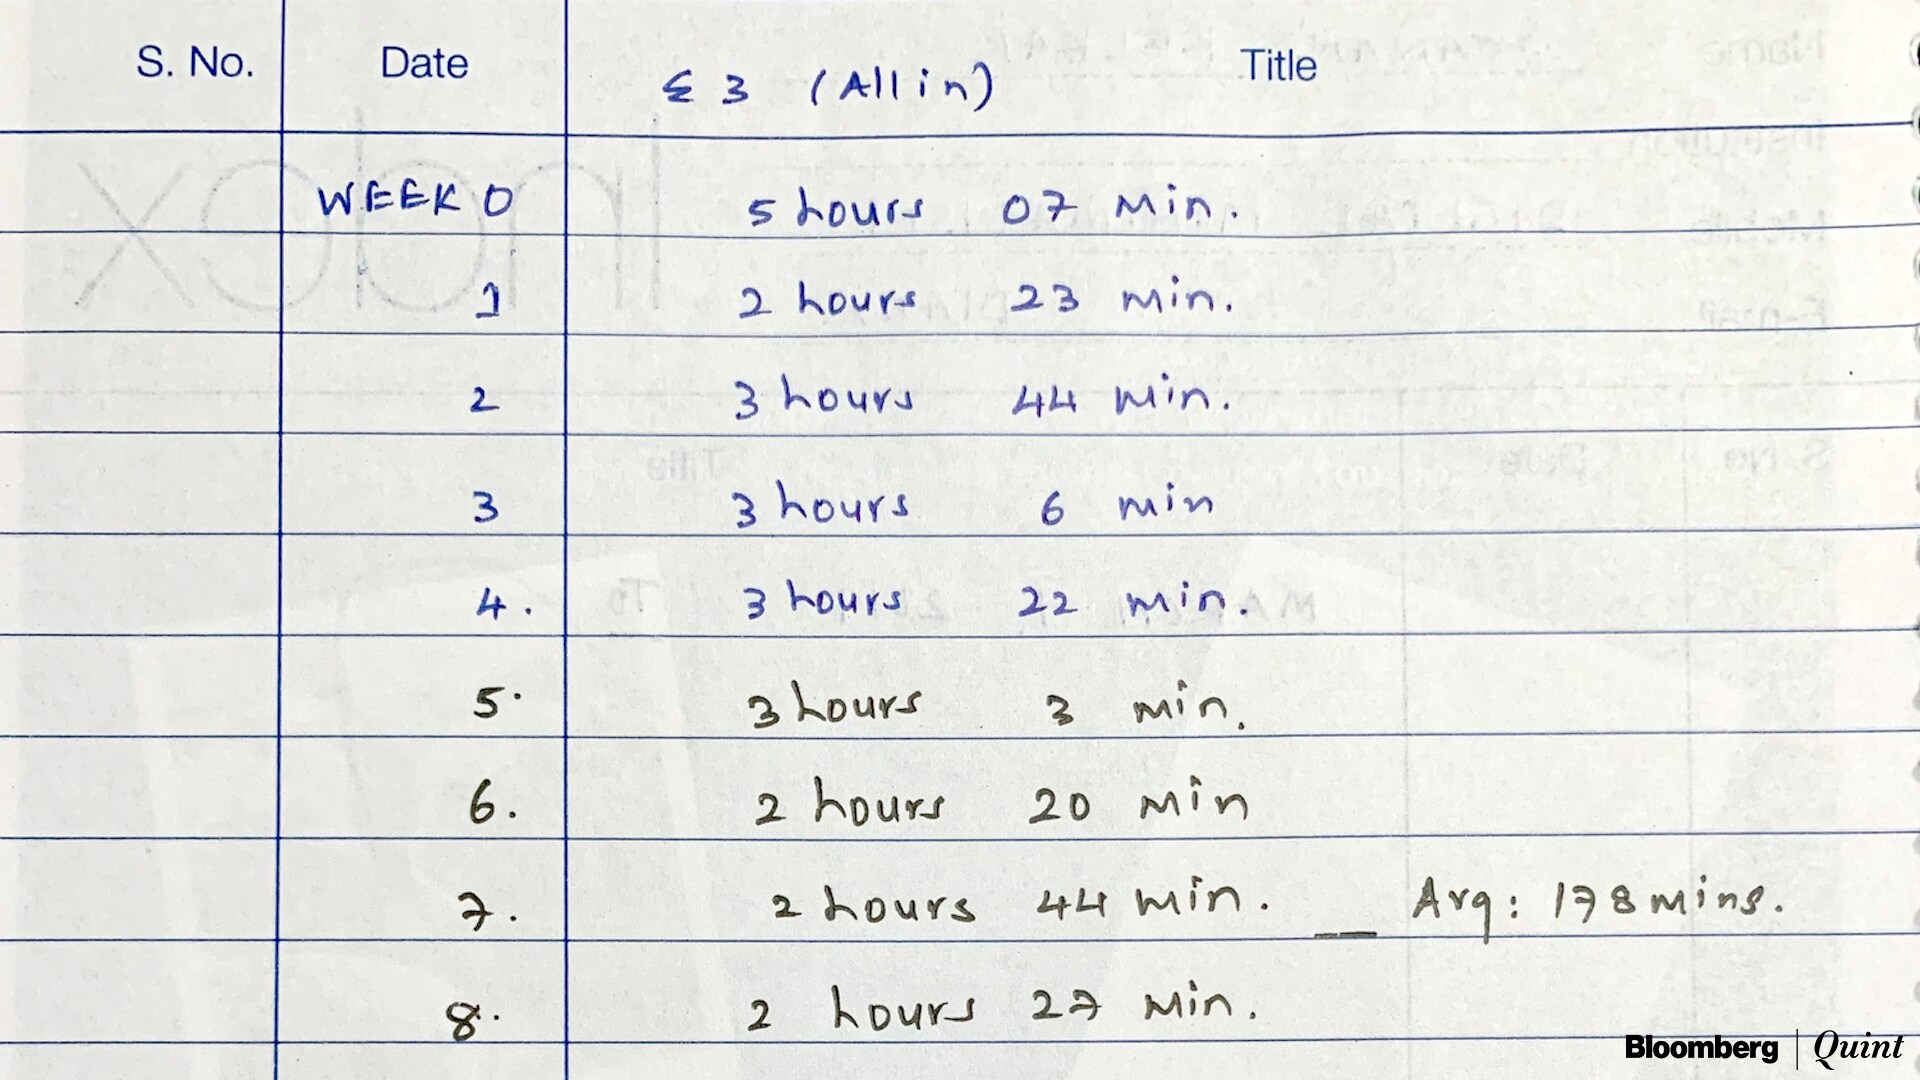 S. No. Date Title
Σ 3 (All in)
WEEK 0 5 hours 07 min.
1 2 hours 23 min.
2 3 hours 44 min.
3 3 hours 6 min
4. 3 hours 22 min.
5. 3 hours 3 min.
6. 2 hours 20 min
7. 2 hours 44 min. __ Avg: 178 mins.
8. 2 hours 27 min.
Bloomberg | Quint